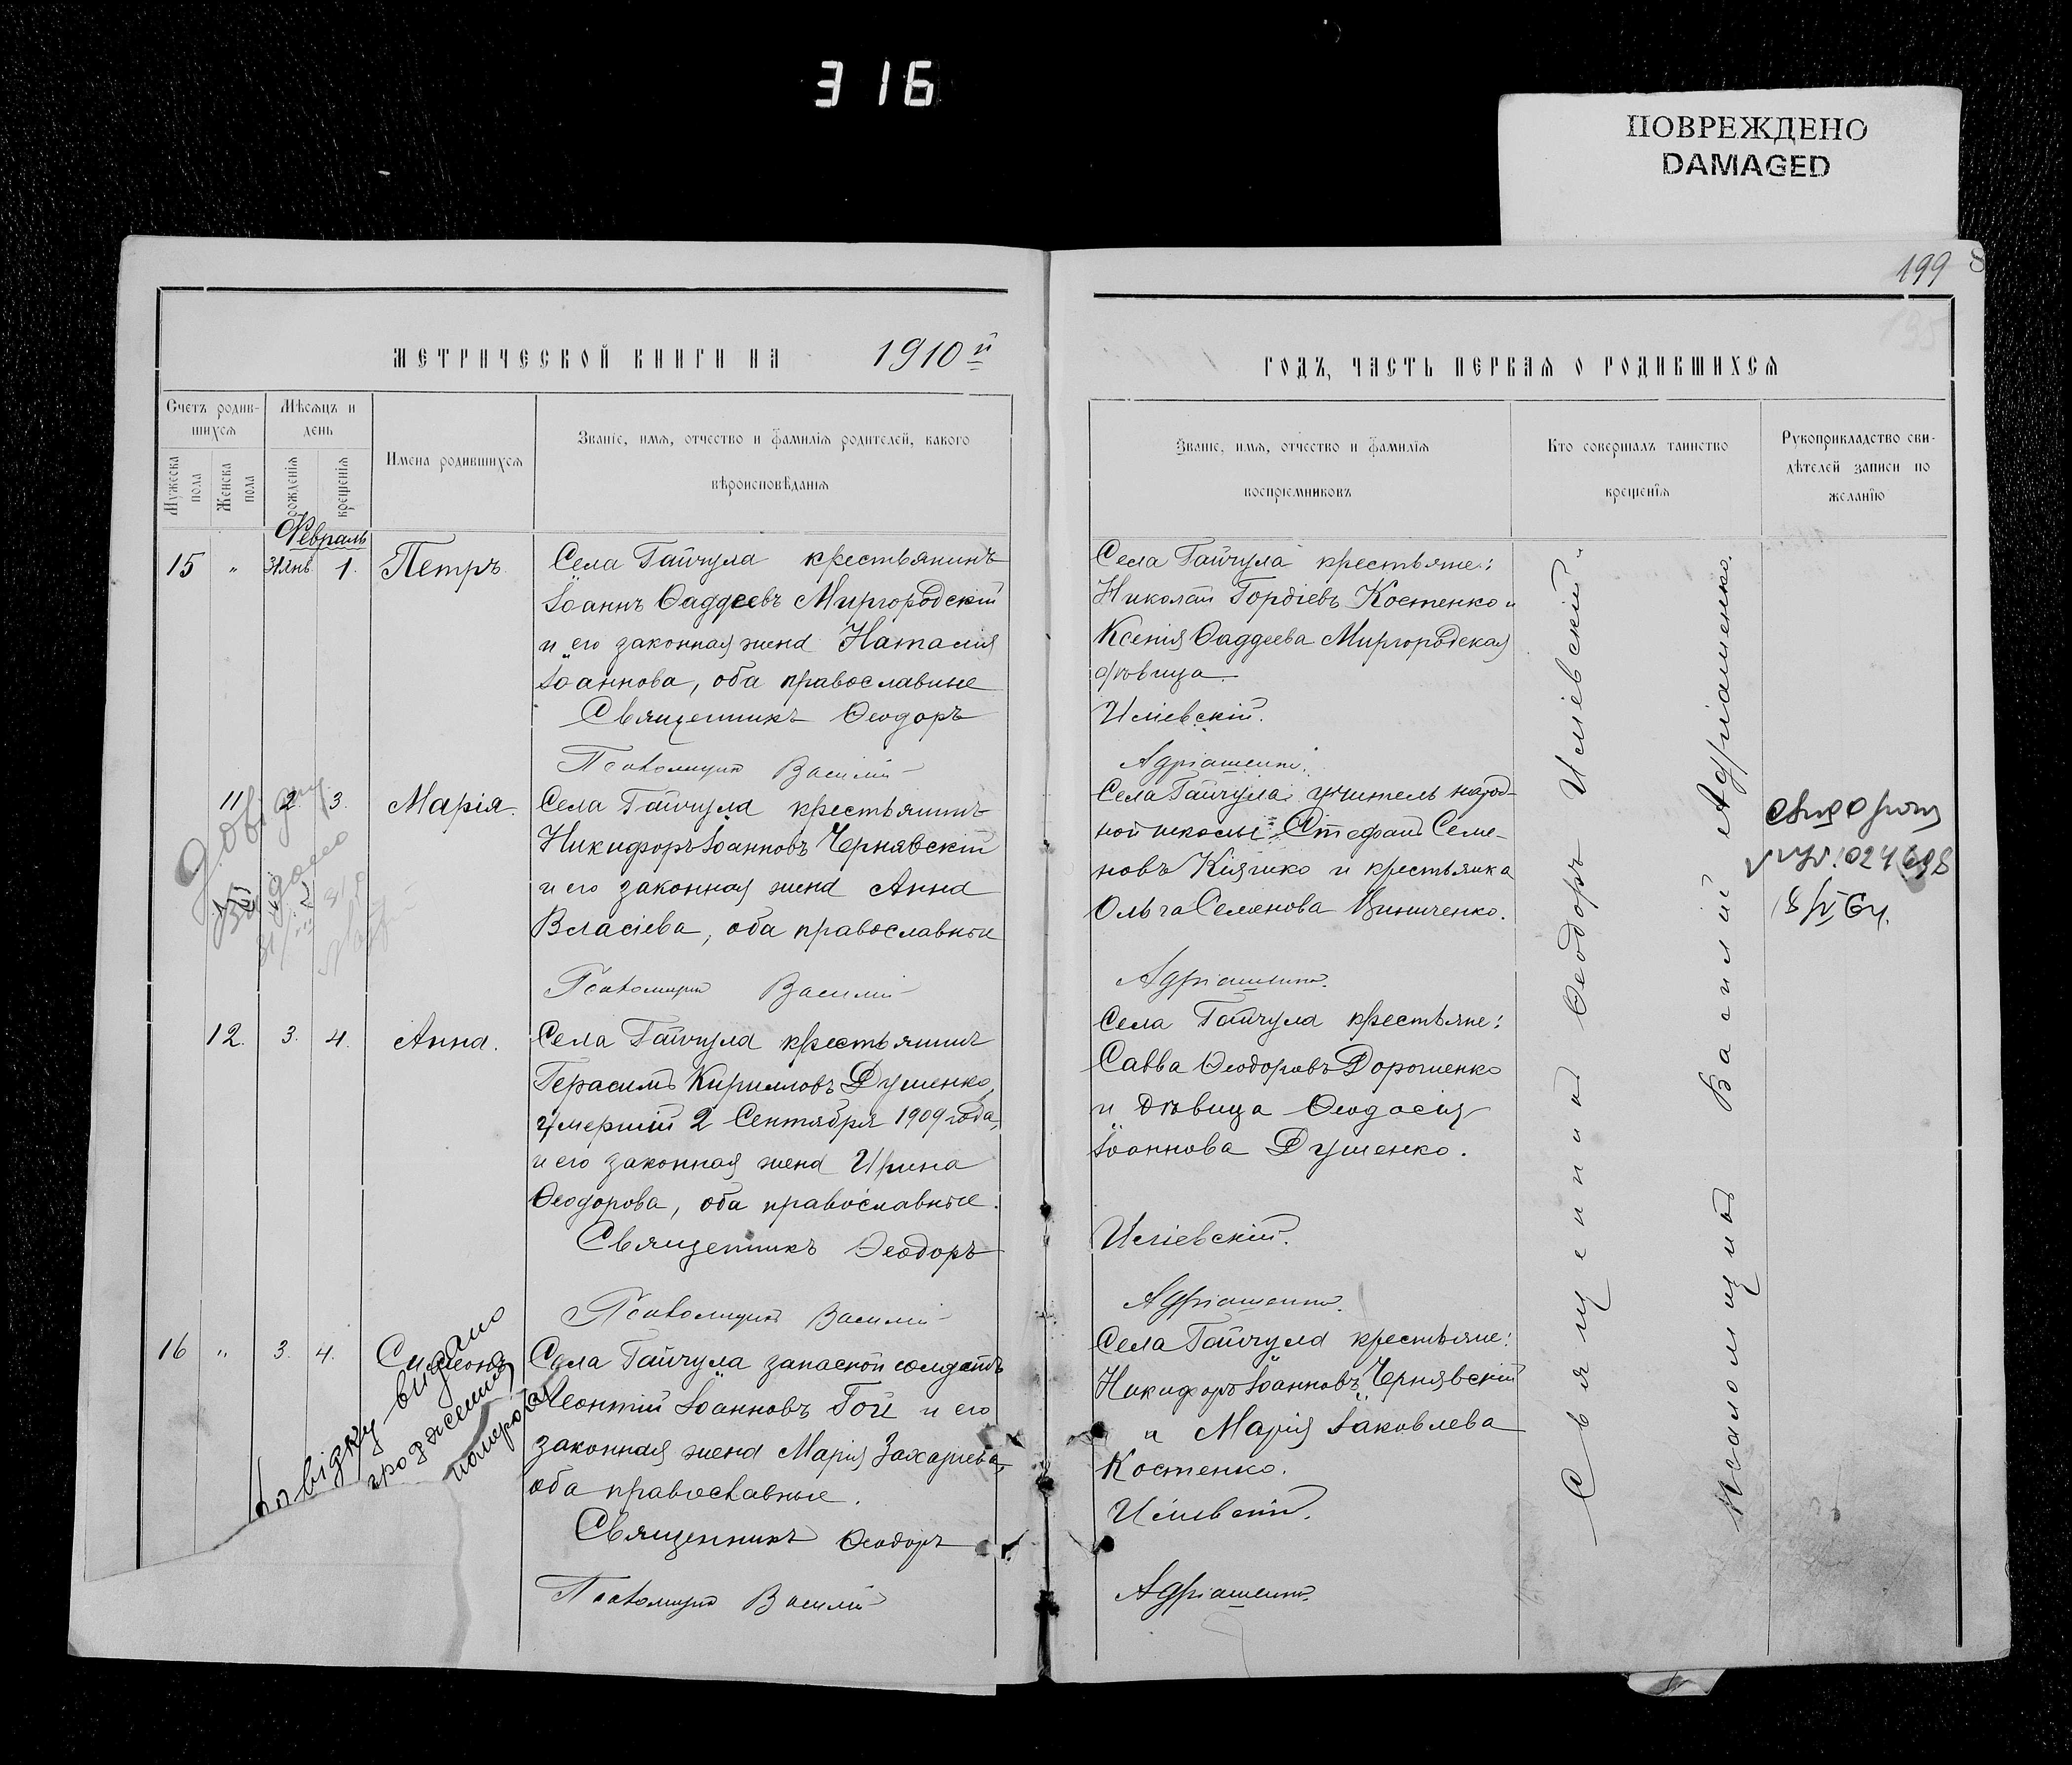 316
ПОВРЕЖДЕНО
DAMAGED
199
МЕТРИЧЕСКОЙ КНИГИ НА 1910й
Счетъ родив-
шихся
Мѣсяцъ и
день
Мужеска
пола
Женска
пола
рожденія
крещенія
Имена родившихся
Званіе, имя, отчество и фамилія родителей, какого
вѣроисповѣданія
Февраль
15 " 31 Янв. 1. Петръ
Села Гайчула крестьянинъ
Іоаннъ Ѳаддеевъ Миргородскій
и его законная жена Наталія
Іоаннова, оба православные
Священникъ Ѳеодоръ
Псаломщикъ Василій
11 2. 3. Марія.
Села Гайчула крестьянинъ
Никифоръ Іоанновъ Чернявскій
и его законная жена Анна
Власіева, оба православные
Псаломщикъ Василій
Довідку
видано
12. 3. 4. Анна.
Села Гайчула крестьянинъ
Герасимъ Кирилловъ Душенко,
умершій 2 Сентября 1909 года,
и его законная жена Ирина
Ѳеодорова, оба православные.
Священникъ Ѳеодоръ
Псаломщикъ Василій
16 " 3. 4. Симеонъ
Села Гайчула запасной солдатъ
Леонтій Іоанновъ Гой и его
законная жена Марія Захаріева,
оба православные.
Священникъ Ѳеодоръ
Псаломщикъ Василій
Довідку видано
ГОДЪ, ЧАСТЬ ПЕРВАЯ О РОДИВШИХСЯ
Званіе, имя, отчество и фамилія
воспріемниковъ
Кто совершалъ таинство
крещенія
Рукоприкладство сви-
дѣтелей записи по
желанію
Села Гайчула крестьяне:
Николай Гордіевъ Костенко и
Ксенія Ѳаддеева Миргородская
дѣвица.
Иліевскій.
Адріашенко.
Села Гайчула: учитель народ-
ной школы Стефанъ Семе-
новъ Кіяшко и крестьянка
Ольга Семенова Виниченко.
Адріашенко.
Села Гайчула крестьяне:
Савва Ѳеодоровъ Дорошенко
и дѣвица Ѳеодосія
Іоаннова Душенко.
Иліевскій.
Адріашенко.
Села Гайчула крестьяне:
Никифоръ Іоанновъ Чернявскій
и Марія Іаковлева
Костенко.
Иліевскій.
Адріашенко.
Священникъ Ѳеодоръ Иліевскій
Псаломщикъ Василій Адріашенко.